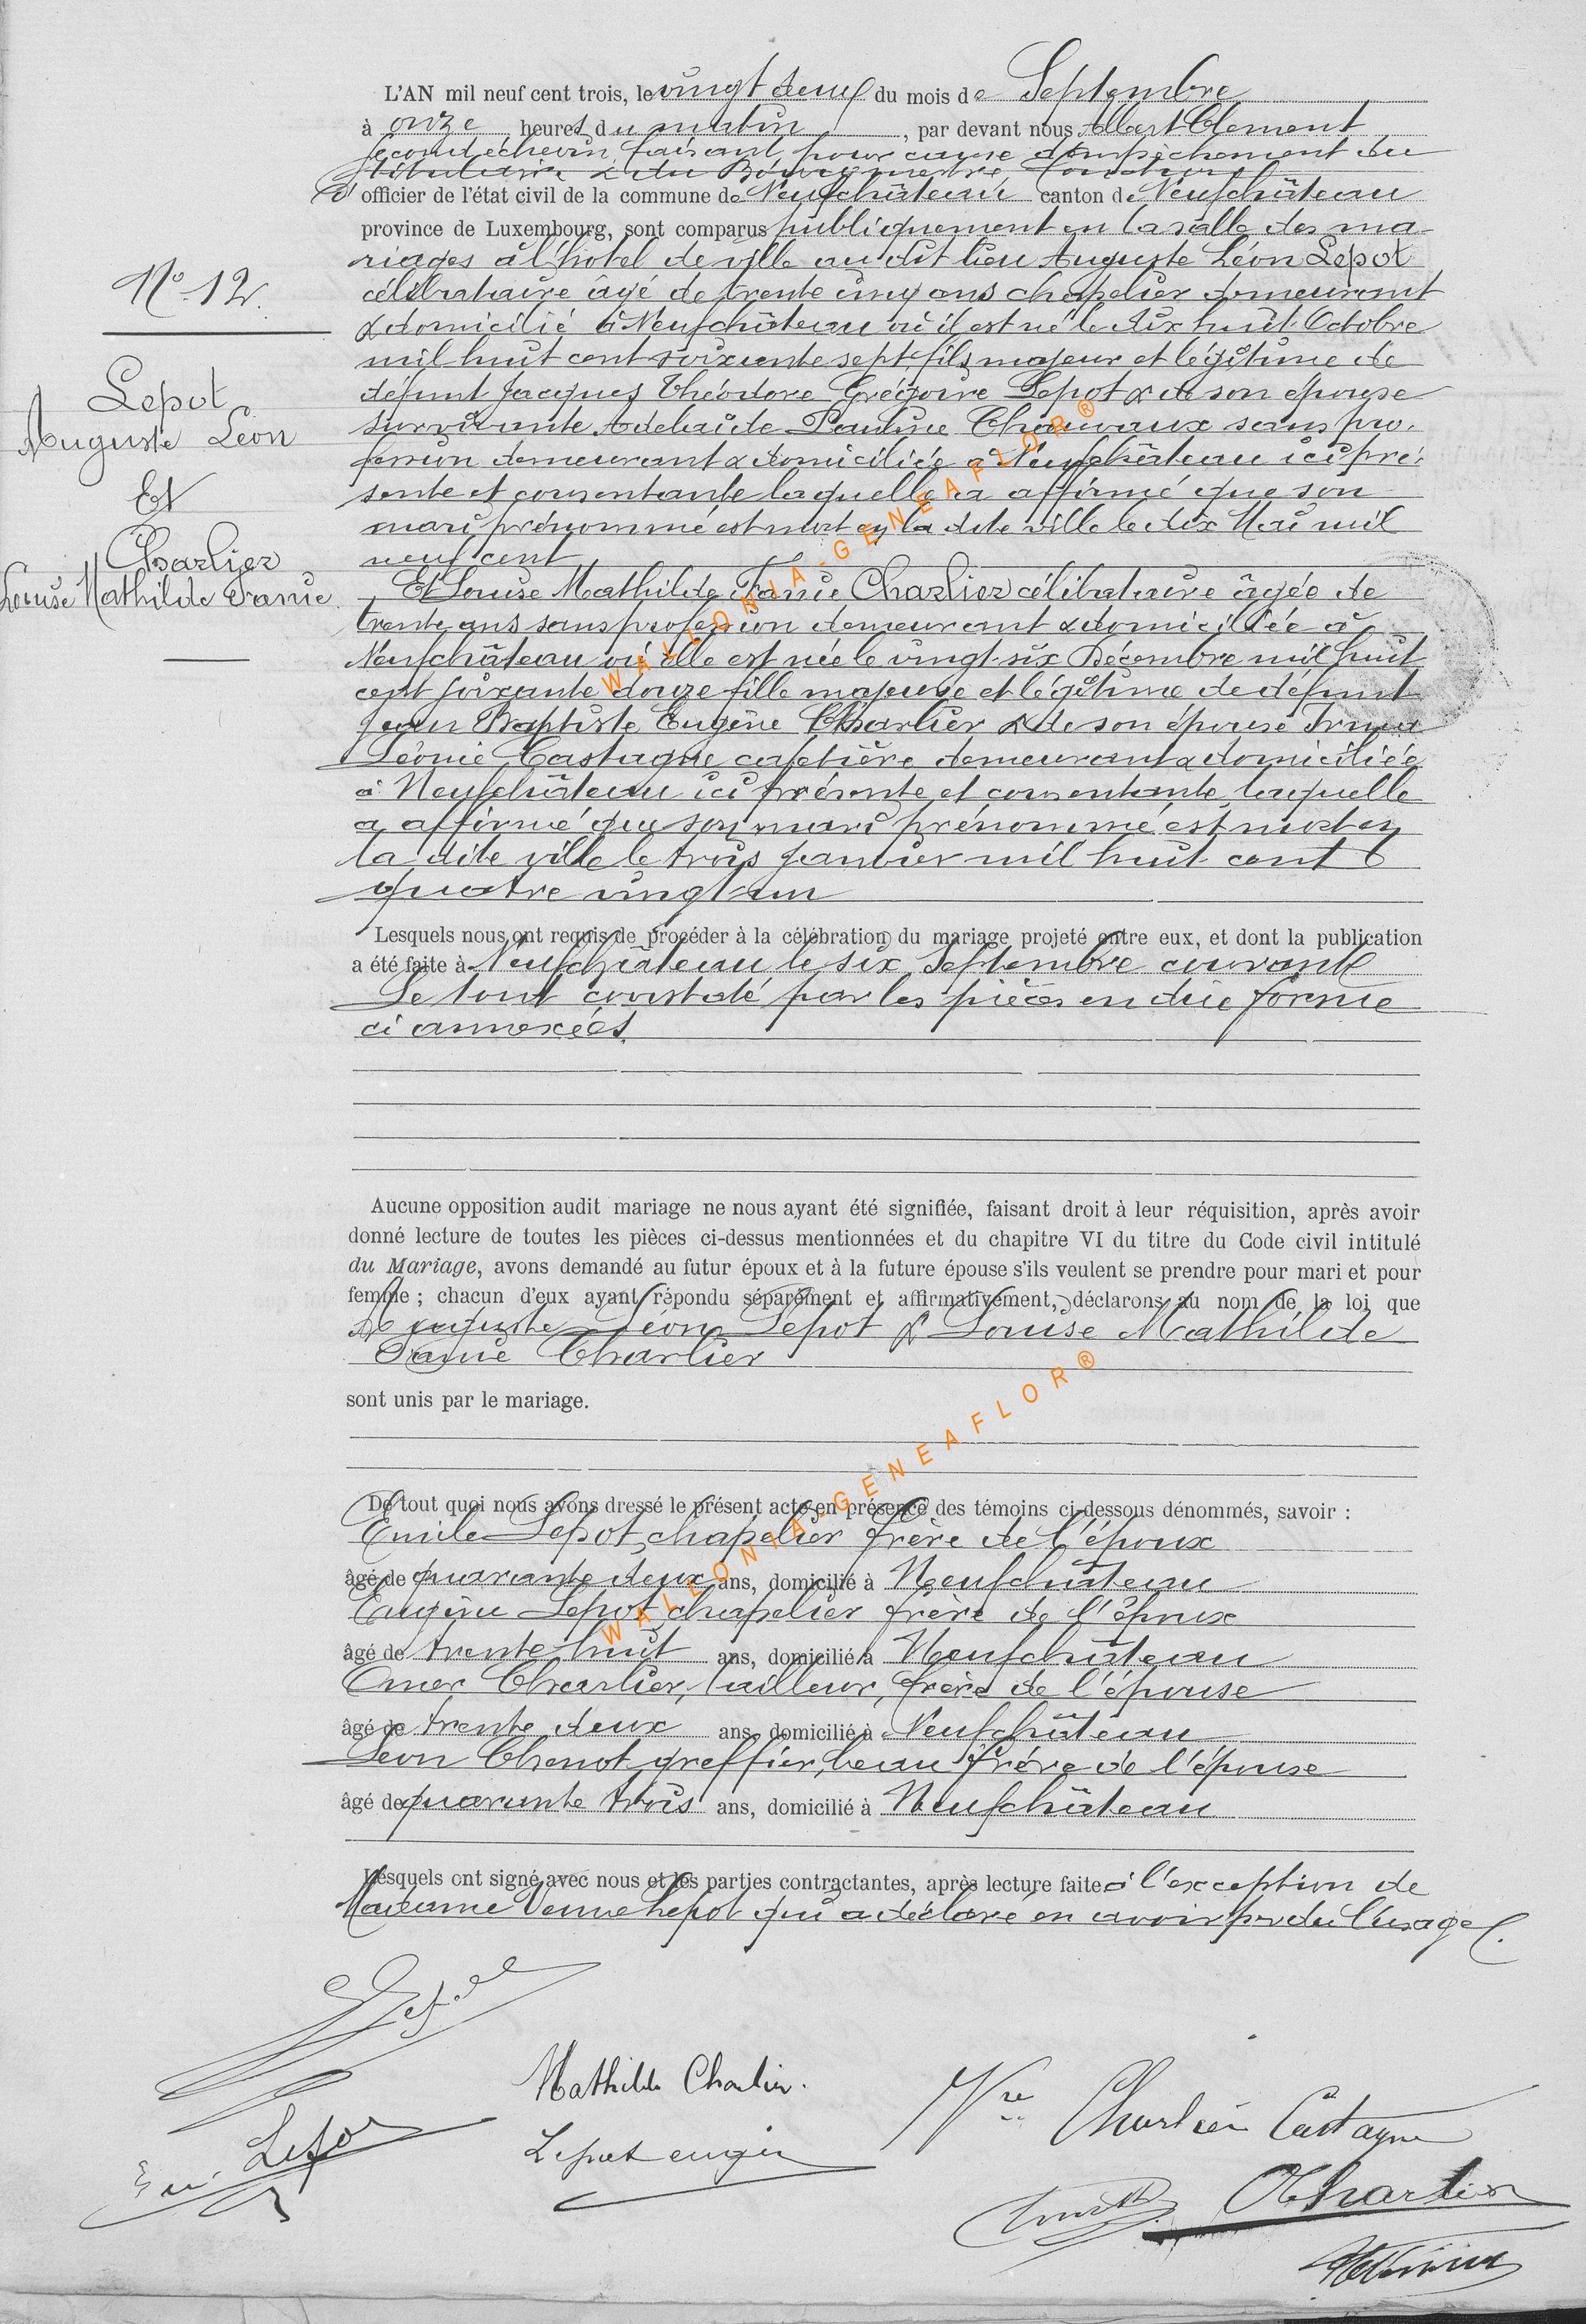 N° 12.
Lepot
Auguste Léon
Et
Charlier
Louise Mathilde Fanie
L'AN mil neuf cent trois, le vingt deux du mois de Septembre
à onze heures du matin, par devant nous Albert Clement
second échevin, faisant pour cause d'empêchement du
titulaire & du Bourgmestre fonction
officier de l'état civil de la commune de Neufchâteau canton de Neufchâteau
province de Luxembourg, sont comparus publiquement en la salle des ma-
riages à l'hôtel de ville au dit lieu Auguste Léon Lepot
célibataire âgé de trente cinq ans chapelier demeurant
& domicilié à Neufchâteau où il est né le dix huit Octobre
mil huit cent soixante sept, fils majeur et légitime de
défunt Jacques Théodore Grégoire Lepot & de son épouse
survivante Adelaïde Pauline Chauvaux sans pro-
fession demeurant & domiciliée à Neufchâteau ici pré-
sente et consentante laquelle a affirmé que son
mari prénommé est mort en la dite ville le dix Mai mil
neuf cent
Et Louise Mathilde Fanie Charlier célibataire âgée de
trente ans sans profession demeurant & domiciliée à
Neufchâteau où elle est née le vingt-six Décembre mil huit
cent soixante douze fille majeure et légitime de défunt
Jean Baptiste Eugène Charlier & de son épouse Irma
Léonie Castagne cafetière demeurant & domiciliée
à Neufchâteau ici présente et consentante laquelle
a affirmé que son mari prénommé est mort en
la dite ville le trois janvier mil huit cent
quatre vingt un
Lesquels nous ont requis de procéder à la célébration du mariage projeté entre eux, et dont la publication
a été faite à Neufchâteau le six Septembre courant
Le tout constaté par les pièces en due forme
ci annexées.
Aucune opposition audit mariage ne nous ayant été signifiée, faisant droit à leur réquisition, après avoir
donné lecture de toutes les pièces ci-dessus mentionnées et du chapitre VI du titre du Code civil intitulé
du Mariage, avons demandé au futur époux et à la future épouse s'ils veulent se prendre pour mari et pour
femme ; chacun d'eux ayant répondu séparément et affirmativement, déclarons au nom de la loi que
Auguste Léon Lepot & Louise Mathilde
Fanie Charlier
sont unis par le mariage.
De tout quoi nous avons dressé le présent acte en présence des témoins ci-dessous dénommés, savoir :
Emile Lepot, chapelier frère de l'époux
âgé de quarante deux ans, domicilié à Neufchâteau
Eugène Lepot, chapelier frère de l'époux
âgé de trente-huit ans, domicilié à Neufchâteau
Omer Charlier, tailleur, frère de l'épouse
âgé de trente deux ans, domicilié à Neufchâteau
Leon Chenot greffier, beau frère de l'épouse
âgé de quarante trois ans, domicilié à Neufchâteau
Lesquels ont signé avec nous et les parties contractantes, après lecture faite à l'exception de
Madame Veuve Lepot qui a déclaré en avoir perdu l'usage.
Mathilde Charlier.
Vve Charlier Castagne
Lepot
Lepot eugèn
OCharlier
WALLONIA-GENEAFLOR®
WALLONIA-GENEAFLOR®